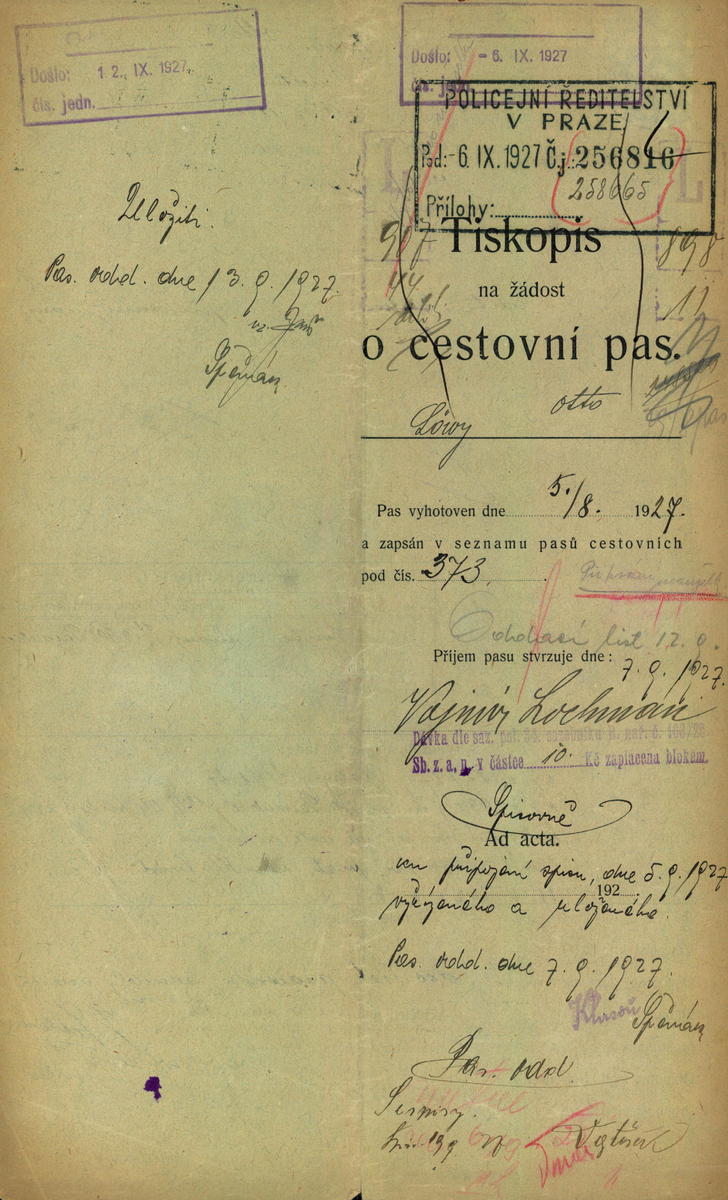 Došlo: 12. IX. 1927
čís. jedn.
Uložiti.
Pas. odd. dne 13. 9. 1927.
Došlo: - 6. IX. 1927
čís. jedn.
POLICEJNÍ ŘEDITELSTVÍ
V PRAZE
Pod: - 6. IX. 1927 Č.j.: 256816
258665
Přílohy:
907 Tiskopis 898
na žádost 11
o cestovní pas.
Löwy Otto
Pas vyhotoven dne 5./8. 1927.
a zapsán v seznamu pasů cestovních
pod čís. 373.
Odhlací list 12. 9.
Příjem pasu stvrzuje dne:
7. 9. 1927.
Vojmír Lochman
Dávka dle saz. pol.
Sb. z. a. n. v částce 10. Kč zaplacena blokem.
Spisovně
Ad acta.
ku připojení spisu, dne 5. 9. 1927
192
vyřízeného a uloženého.
Pas. odd. dne 7. 9. 1927.
Pas. odd.